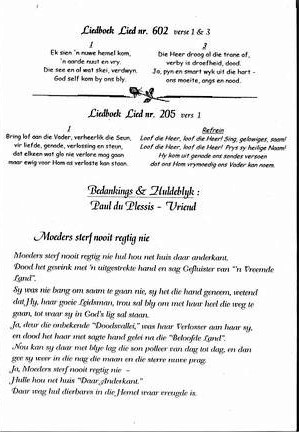 Liedboek Lied nr. 602 verse 1 & 3
1
Ek sien 'n nuwe hemel kom,
'n aarde nuut en vry.
Die see en al wat skei, verdwyn.
God self kom by ons bly.
3
Die Heer droog al die trane af,
verby is droefheid, dood.
Ja, pyn en smart wyk uit die hart -
ons moeite, angs en nood.
Liedboek Lied nr. 205 vers 1
1
Bring lof aan die Vader, verheerlik die Seun,
vir liefde, genade, verlossing en steun,
dat elkeen wat glo nie verlore mag gaan
maar ewig voor Hom as verloste kan staan.
Refrein
Loof die Heer, loof die Heer! Sing, gelowiges, saam!
Loof die Heer, loof die Heer! Prys sy heilige Naam!
Hy kom uit genade ons sondes versoen
dat ons Hom vrymoedig ons Vader kan noem.
Bedankings & Huldeblyk :
Paul du Plessis - Vriend
Moeders sterf nooit regtig nie
Moeders sterf nooit regtig nie hul hou net huis daar anderkant.
Dood het gewink met 'n uitgestrekte hand en sag Gefluister van "n Vreemde
Land".
Sy was nie bang om saam te gaan nie, sy het die hand geneem, wetend
dat Hy, haar goeie Leidsman, trou sal bly om met haar heel die weg te
gaan, tot waar sy in God's lig sal staan.
Ja, deur die onbekende "Doodsvallei," was haar Verlosser aan haar sy,
en dood het haar met sagte hand gelei na die "Beloofde Land".
Nou kan sy daar met blye lag die son polleer van dag tot dag, en dan
gee sy weer in die nag die maan en die sterre nuwe prag.
Ja, Moeders sterf nooit regtig nie -
Hulle hou net huis "Daar Anderkant."
Daar weg hul dierbares in die Hemel waar vreugde is.